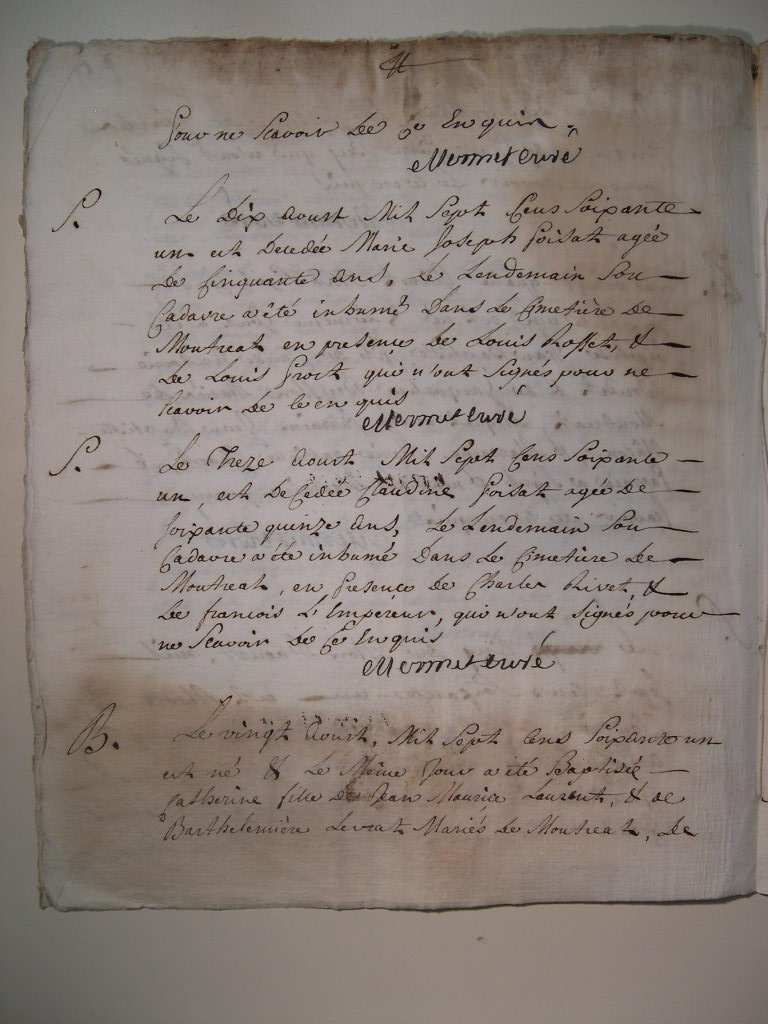 pour ne scavoir De Ce Enquis.
Mermet curé
S. Le Dix Aoust Mil Sept Cens Soixante
un est Decedée Marie Joseph Goisat agée
De Cinquante Ans, Le Lendemain Son
Cadavre a été inhumé Dans Le Cimetière De
Montreal en presence De Louis Rosset, &
De Louis qui n'ont Signés pour ne
scavoir De Ce enquis
Mermet curé
S. Le Treze Aoust Mil Sept Cens Soixante
un, est DeCedée Claudine Goisat agée De
Soixante quinze Ans, Le Lendemain Son
Cadavre a été inhumé Dans Le Cimetière De
Montreal, en Presence De Charles Rivet, &
De francois L'Empereur, qui n'ont Signés pour
ne Scavoir De Ce Enquis
Mermet curé
B. Le vingt Aoust, Mil Sept Cens Soixante un
est né & Le Même Jour a été Baptisée
Catherine fille De Jean Maurice Laurent, & de
Barthelemière Levrat Mariés De Montreal, De